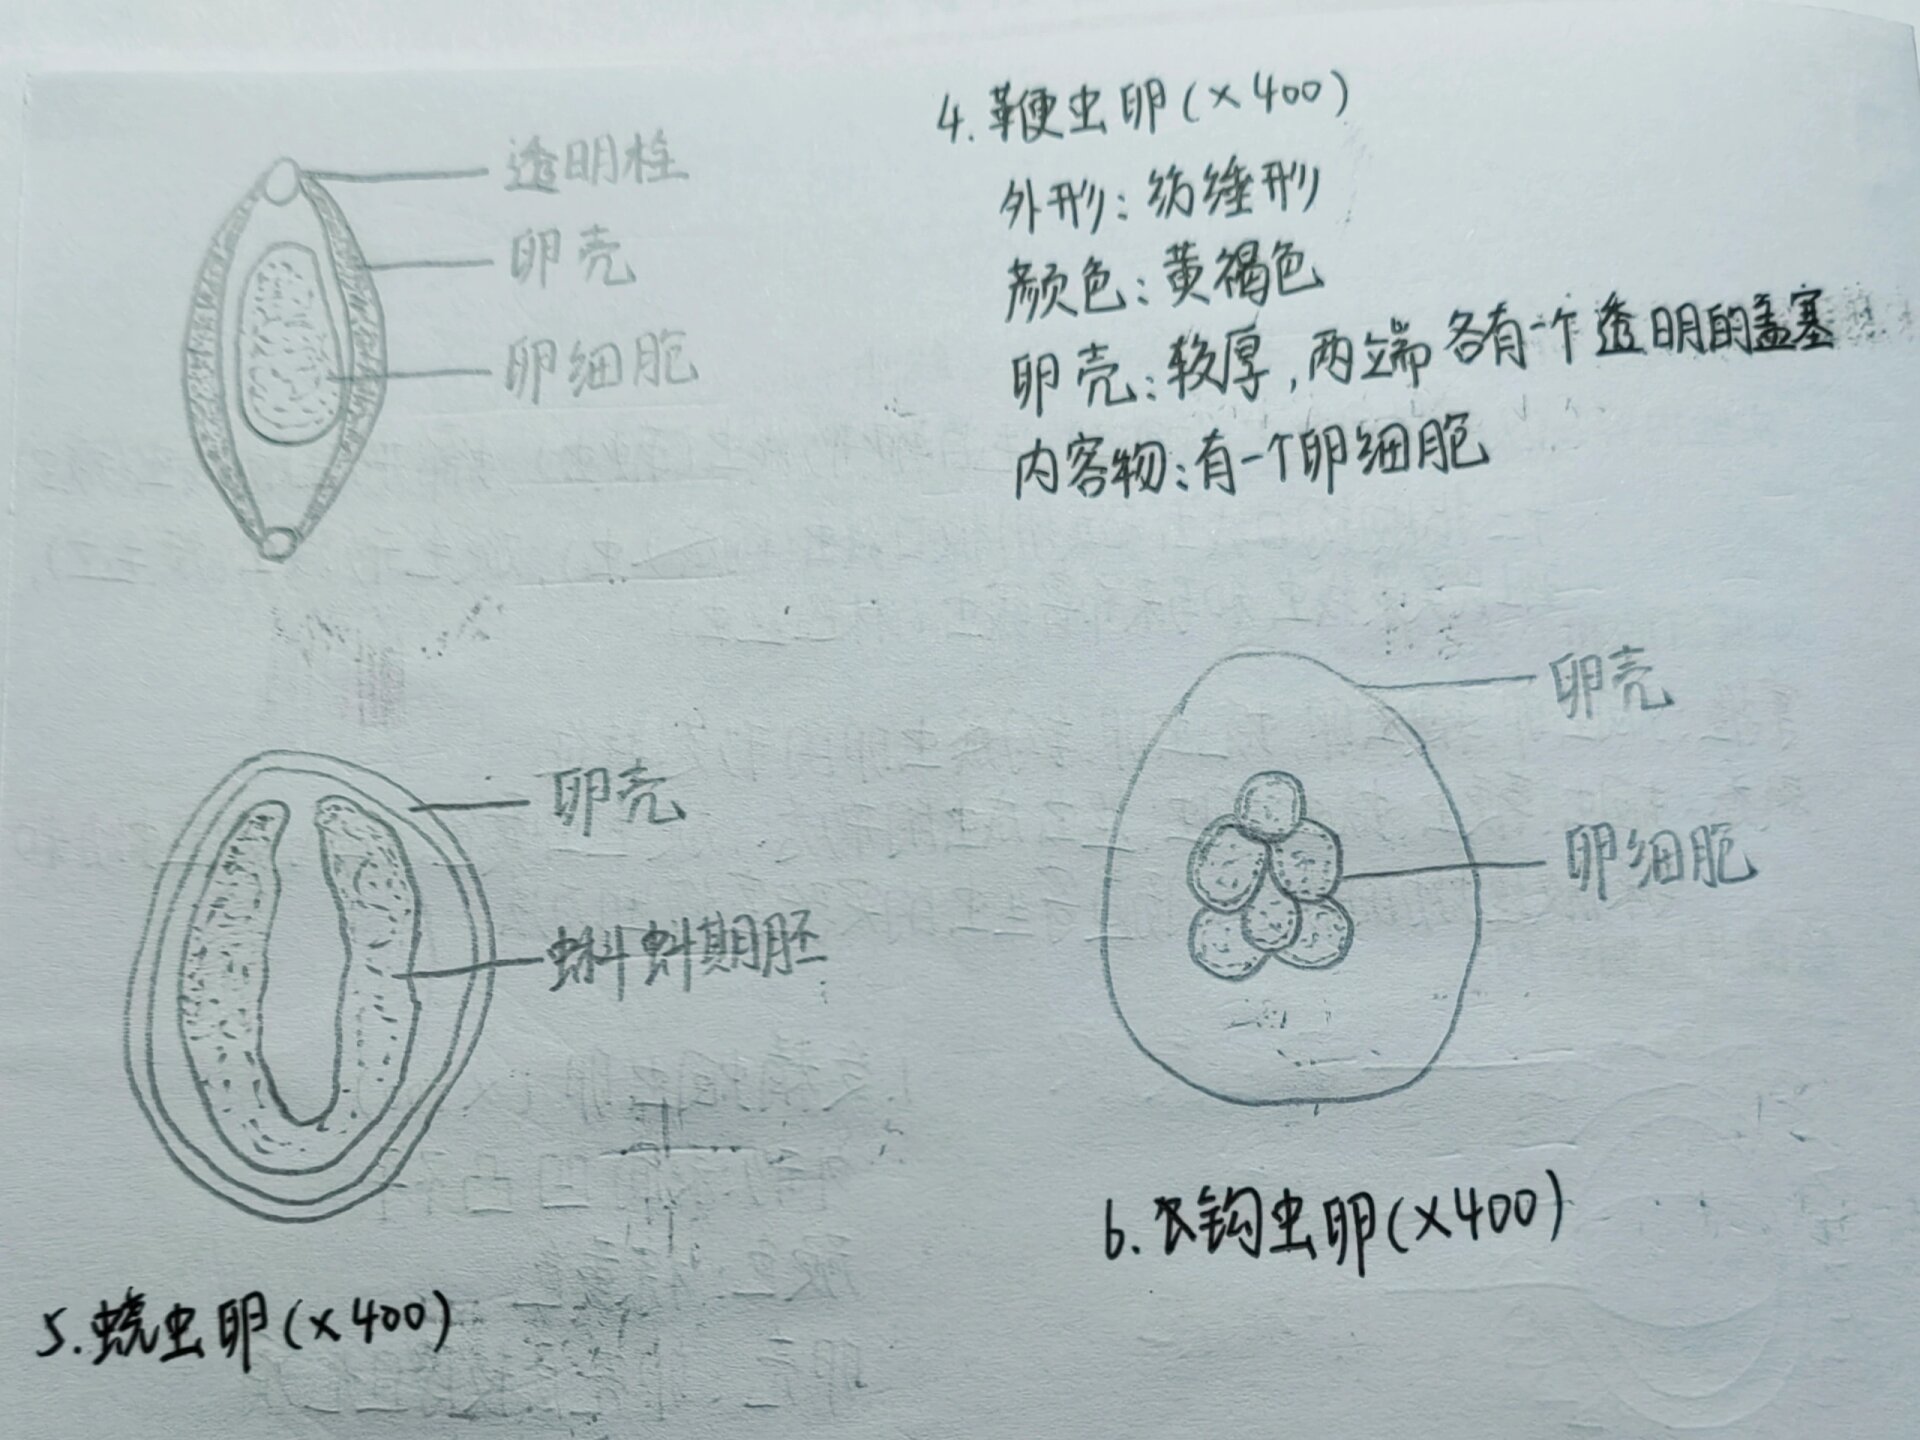 透明栓
卵壳
卵细胞
4.鞭虫卵(×400)
外形:纺缍形
颜色:黄褐色
卵壳:较厚,两端各有一个透明的盖塞
内容物:有一个卵细胞
卵壳
蝌蚪期胚
5.蛲虫卵(×400)
卵壳
卵细胞
6.钩虫卵(×400)